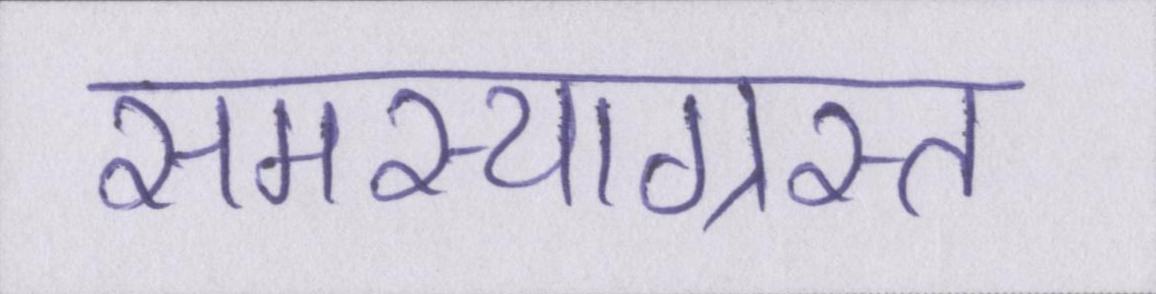 समस्याग्रस्त